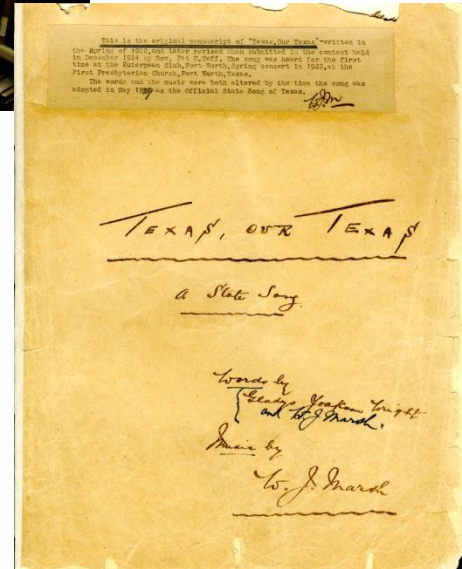 This is the original manuscript of "Texas,Our Texas" written in
the Spring of 1922,and later revised when submitted in the contest held
in December 1924 by Gov. Pat M.Neff. The song was heard for the first
time at the Euterpean Club,Fort Worth,Spring concert in 1922,at the
First Presbyterian Church,Fort Worth,Texas.
The words and the music were both altered by the time the song was
adopted in May 1929 as the Official State Song of Texas.
WJM
TEXAS, OUR TEXAS
A State Song.
Words by
Gladys Yoakum Wright
and W. J. Marsh.
Music by
W. J. Marsh